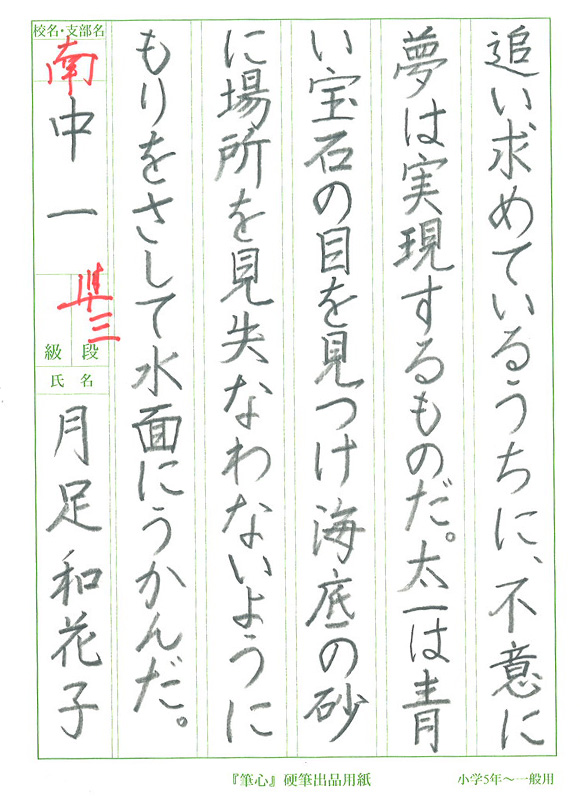 追い求めているうちに、不意に
夢は実現するものだ。太一は青
い宝石の目を見つけ海底の砂
に場所を見失なわないように
もりをさして水面にうかんだ。
校名・支部名
南中一
準三
級 段
氏 名
月足和花子
『筆心』硬筆出品用紙
小学5年〜一般用